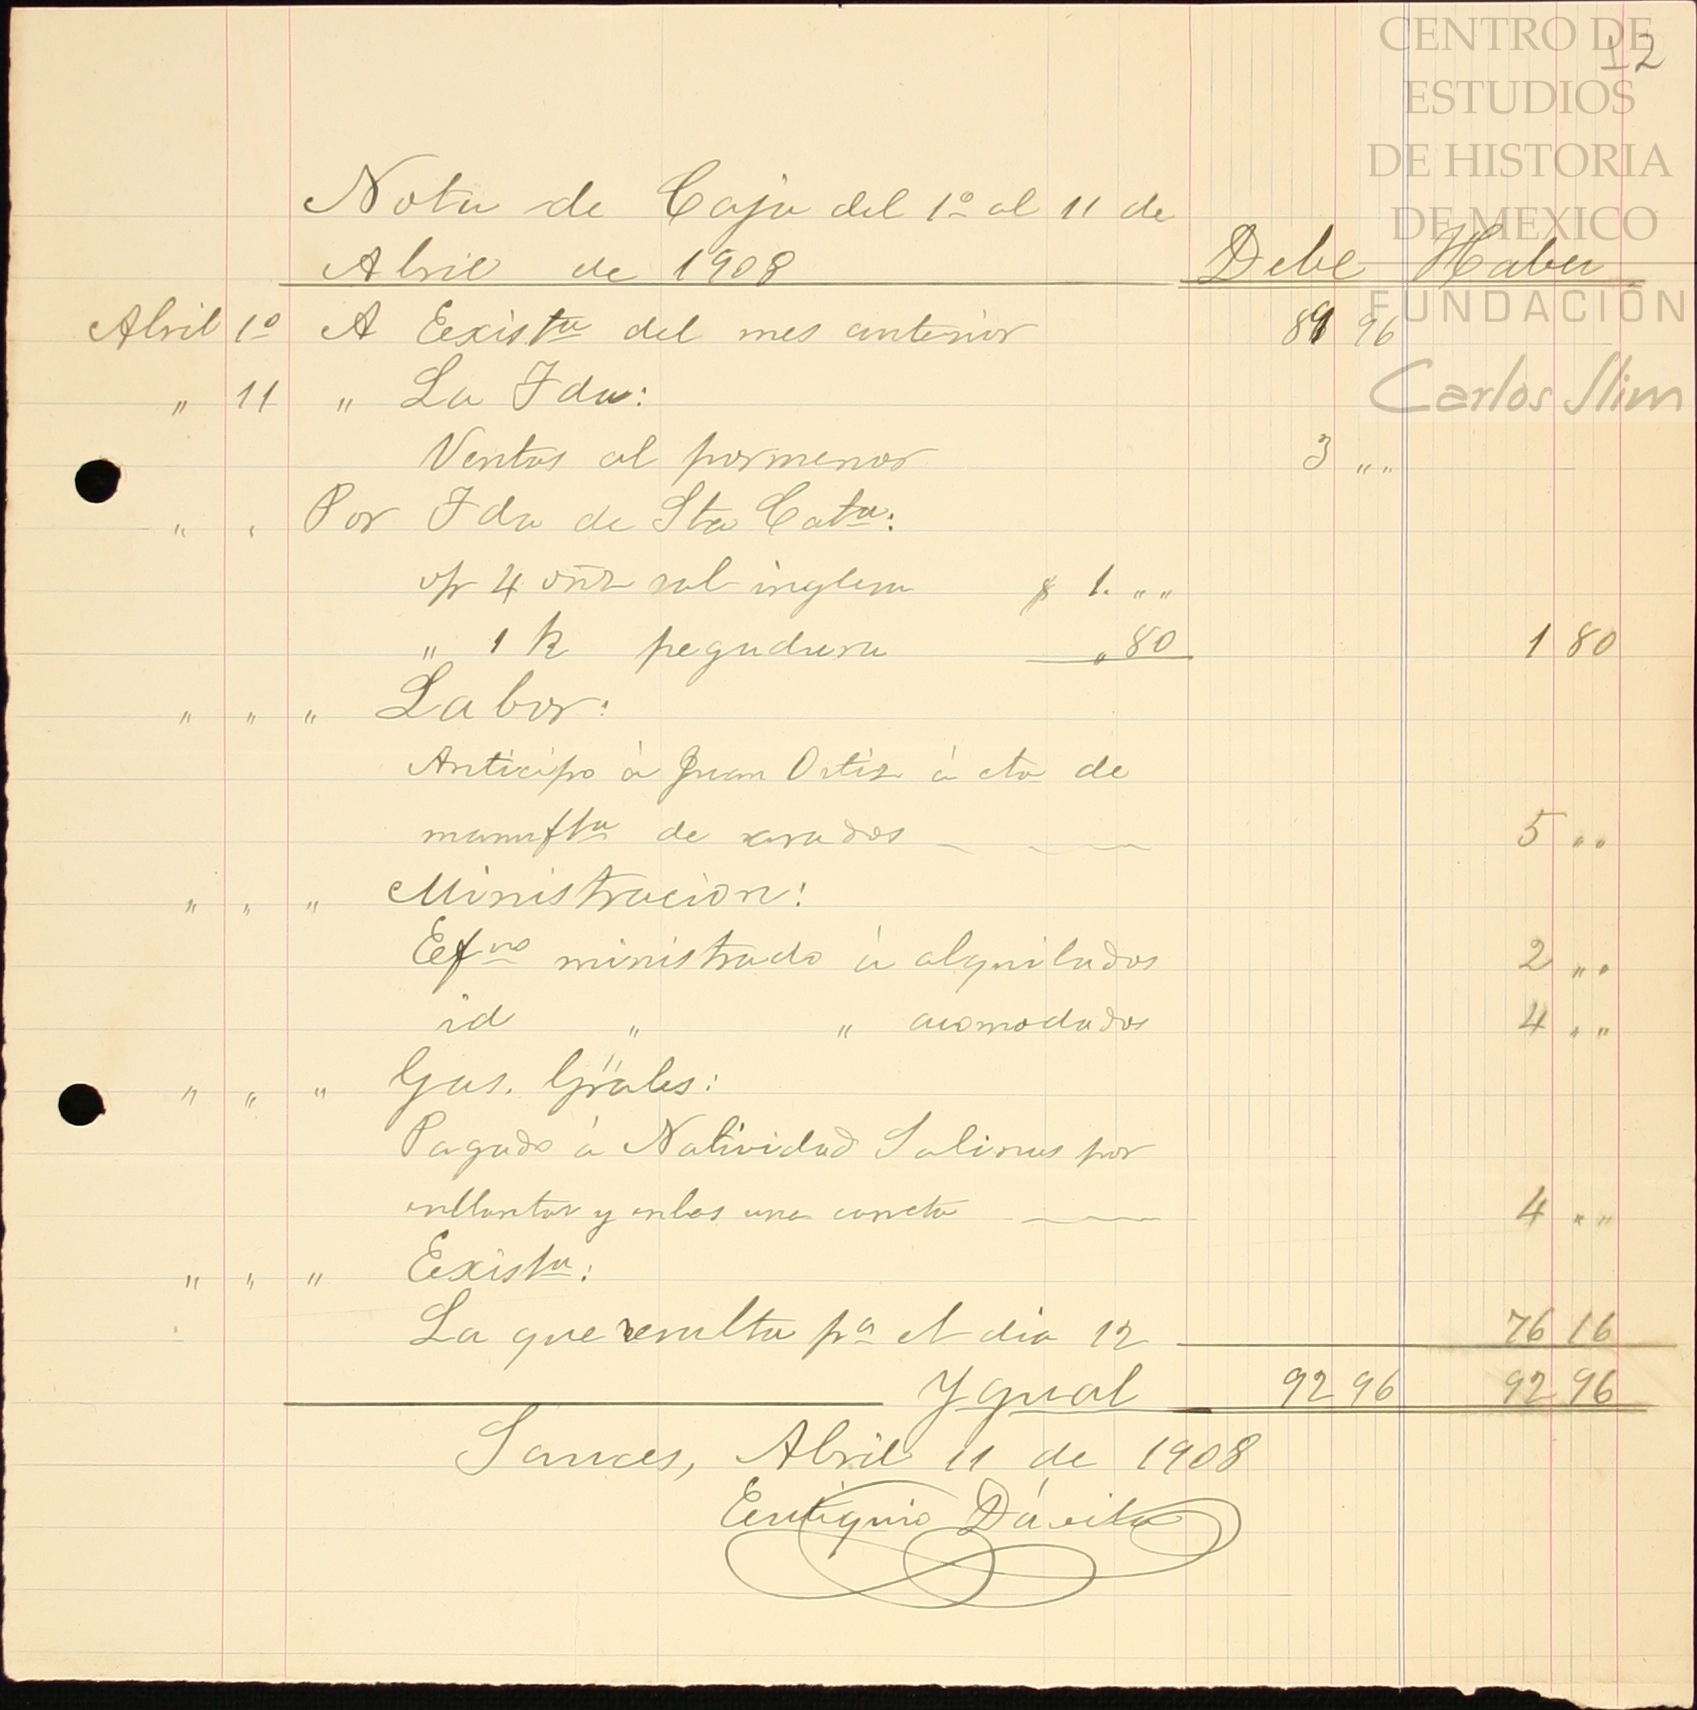 CENTRO DE
ESTUDIOS
DE HISTORIA
DE MEXICO
FUNDACIÓN
Carlos Slim
12
Nota de Caja del 1º al 11 de
Abril de 1908 Debe Haber
Abril 1º A Eexista del mes anterior 89 96
" 11 " La Fda:
Ventas al pormenor 3 ""
" " Por Fda de Sta Cata:
4 onz sal inglesa $ 1. ""
" 1 k pegadura " 80 1 80
" " " Labor:
Anticipo á Juan Ortiz á cta de
manufta de arados 5 ""
" " " Ministracion:
Eefvo ministrado á alquilados 2 ""
id " " acomodados 4 ""
" " " Gas. Gräles:
Pagado á Natividad Salinas por
enllantar y una carreta 4 ""
" " " Eexista:
La que resulta pa el dia 12 76 16
Ygual 92 96 92 96
Sauces, Abril 11 de 1908
Eutiquio Dávila